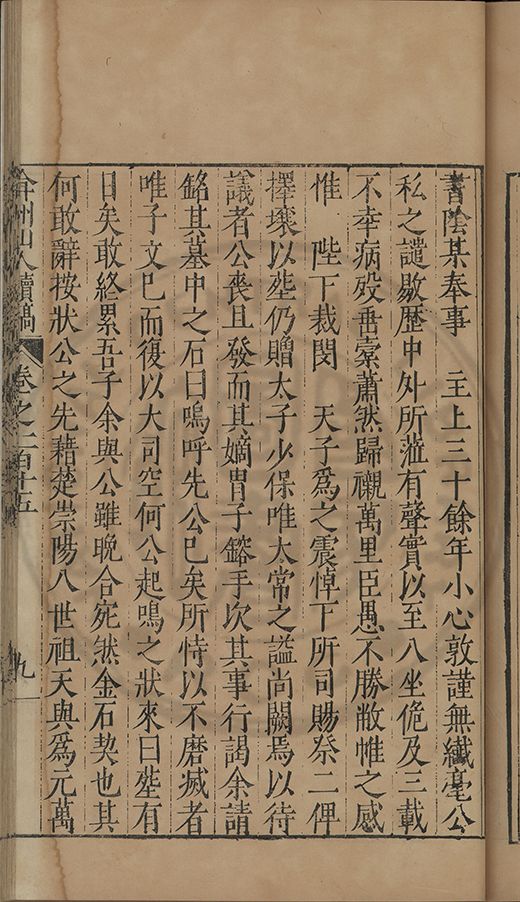 書陰某奉事　主上三十餘年小心敦謹無纖毫公
私之譴敭歷中外所蒞有聲實以至八坐僅及三載
不幸病歿垂橐蕭然歸櫬萬里臣愚不勝敝帷之感
惟　陛下裁閔　天子爲之震悼下所司賜祭二俾
擇壤以塟仍贈太子少保唯太常之謚尚闕焉以待
議者公喪且發而其嫡胄子鎔手次其事行謁余請
銘其墓中之石曰嗚呼先公已矣所恃以不磨滅者
唯子文已而復以大司空何公起鳴之狀來曰塟有
日矣敢終累吾子余與公雖晚合宛然金石契也其
何敢辭按狀公之先藉楚崇陽八世祖天與爲元萬
弇州山人續稿　卷之一百廿五　九